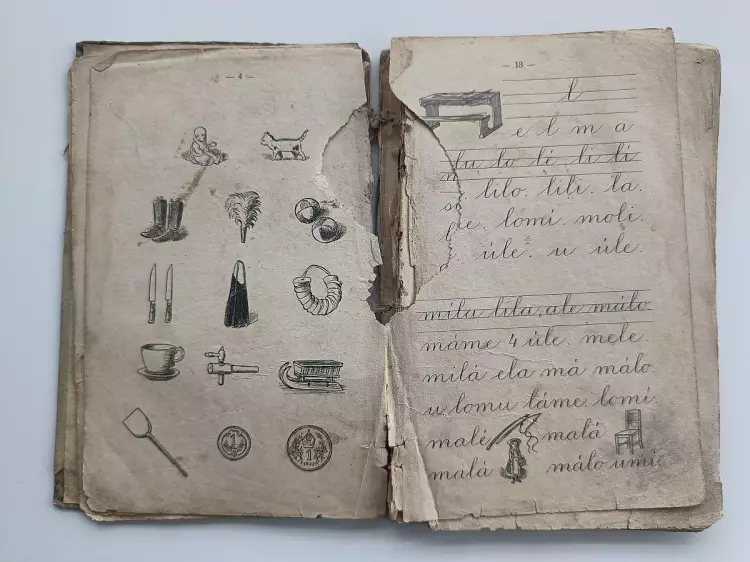 — 4 —
1
1
— 13 —
l
e l m a
lu lo lé li lí
lilo. lili. la.
lomí. moli.
úle. u úle.
míla lila, ale málo
máme 4 úle. mele.
milá ela má málo.
u lomu láme. lomí.
malé malá
malá málo umí.